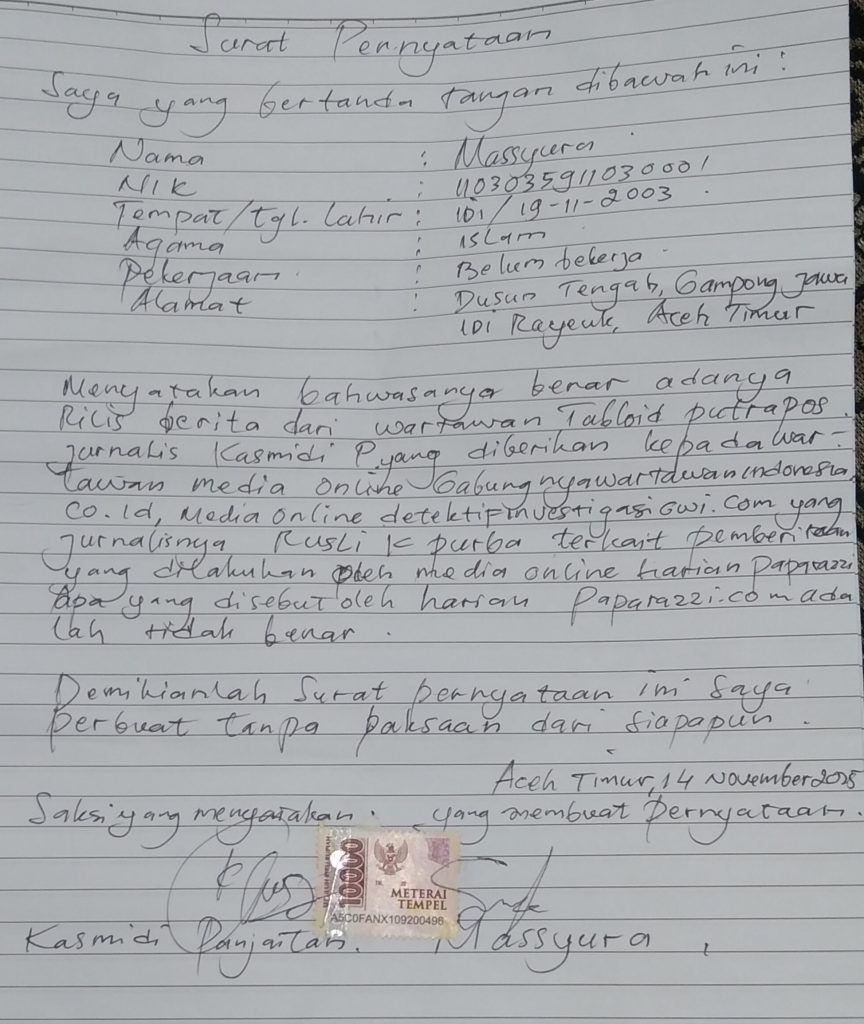 Surat Pernyataan
Saya yang bertanda tangan dibawah ini :
Nama : Massyura
NIK : 1103035911030001
Tempat/tgl. Lahir : IDI / 19-11-2003
Agama : Islam
Pekerjaan : Belum bekerja
Alamat : Dusun Tengah, Gampong Jawa
IDI Rayeuk, Aceh Timur
Menyatakan bahwasanya benar adanya
Rilis berita dari wartawan Tabloid putrapos
jurnalis Kasmidi P yang diberikan kepada war-
tawan media online Gabungnyawartawanindonesia
Co.Id, Media online detektifinvestigasiGwi.com yang
jurnalisnya Rusli K purba terkait pemberitaan
yang dilakukan oleh media online harian Paparazzi
apa yang disebut oleh harian Paparazzi.com ada
lah tidak benar.
Demikianlah Surat pernyataan ini saya
perbuat tanpa paksaan dari siapapun.
Aceh Timur, 14 November 2025
Saksi yang menyatakan. yang membuat Pernyataan.
10000
METERAI
TEMPEL
A5C0FANX109200498
Kasmidi Panjaitan. Massyura